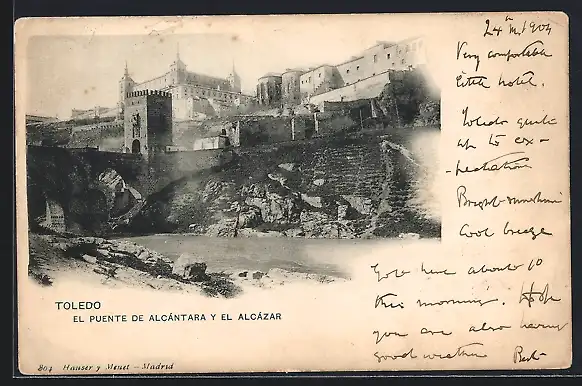 24 III 1904
Very comfortable
little hotel.
Toledo quite
up to ex-
-pectation
Bright sunshine
Cool breeze
Got here about 10
this morning. Hope
you are also having
good weather
TOLEDO
EL PUENTE DE ALCÁNTARA Y EL ALCÁZAR
804 Hauser y Menet - Madrid